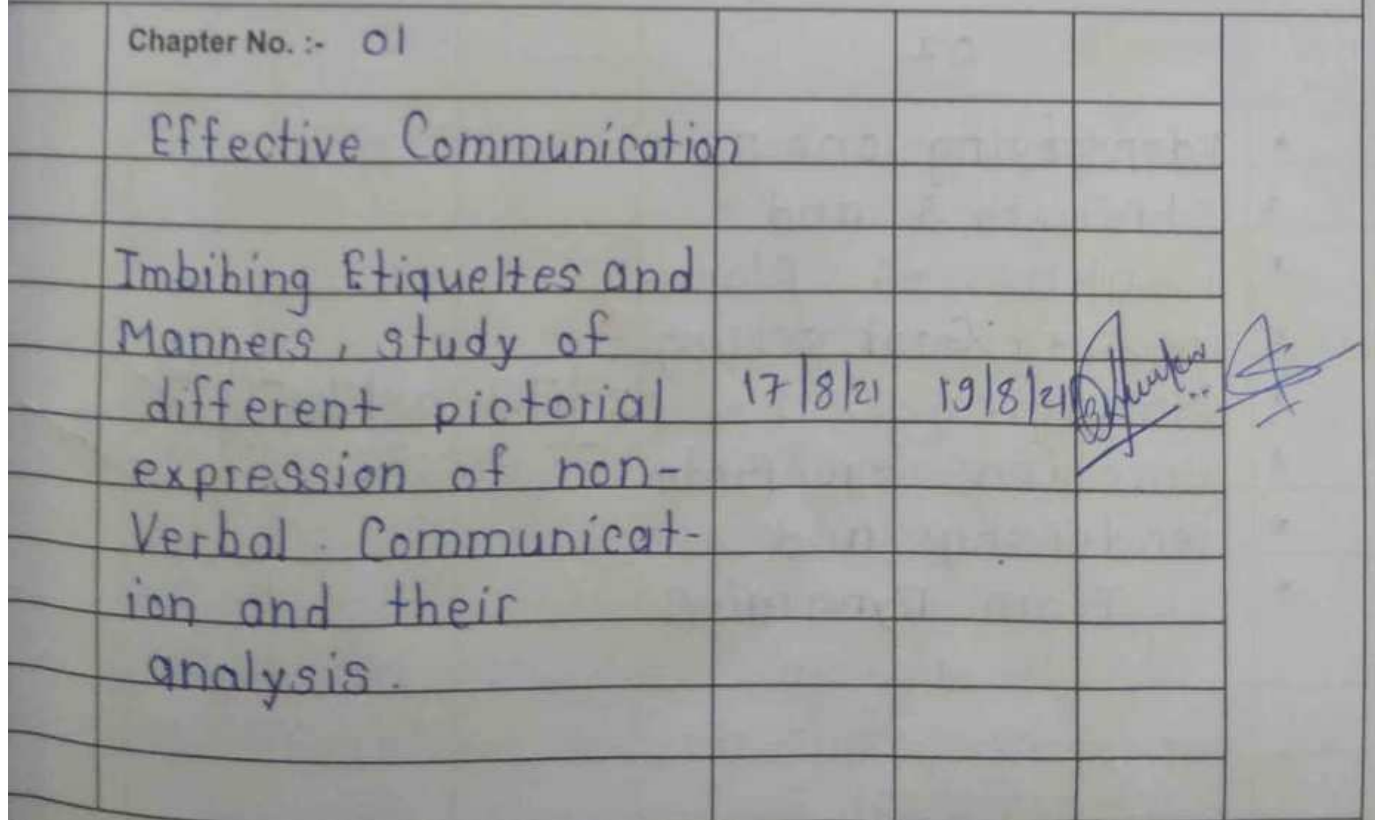 Chapter No. :- 01
Effective Communication
Imbibing Etiquettes and
Manners, study of
different pictorial 17/8/21 19/8/21
expression of non-
Verbal Communicat-
ion and their
analysis.